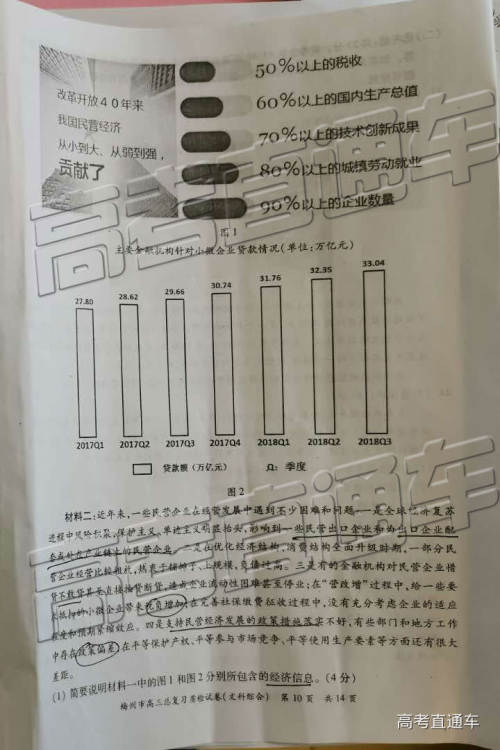 改革开放40年来
我国民营经济
从小到大、从弱到强，
贡献了
50%以上的税收
60%以上的国内生产总值
70%以上的技术创新成果
80%以上的城镇劳动就业
90%以上的企业数量
图1
主要金融机构针对小微企业贷款情况(单位:万亿元)
27.80 28.62 29.66 30.74 31.76 32.35 33.04
2017Q1 2017Q2 2017Q3 2017Q4 2018Q1 2018Q2 2018Q3
贷款额（万亿元） Q: 季度
图2
材料二:近年来,一些民营企业在经营发展中遇到不少困难和问题:一是全球经济复苏
进程中风险积聚,保护主义、单边主义明显抬头,影响到一些民营出口企业和为出口企业配
套或补充产业链上的民营企业。二是在优化经济结构,消费结构全面升级时期,一部分民
营企业经营比较粗放,热衷于铺摊子、上规模,负债过高。三是有的金融机构对民营企业惜
贷不敢贷甚至直接抽贷断贷,造成企业流动性困难甚至停业;在"营改增"过程中,给一些要
求抵扣的小微企业带来税负增加;在完善社保缴费征收过程中,没有充分考虑企业的适应
程度和预期紧缩效应。四是支持民营经济发展的政策措施落实不好,有些部门和地方工作
中存在政策偏差,在平等保护产权、平等参与市场竞争、平等使用生产要素等方面还有很大
差距。
(1)简要说明材料一中的图1和图2分别所包含的经济信息。(4分)
梅州市高三总复习质检试卷(文科综合) 第10页 共14页
高考直通车
高考直通车
高考直通车